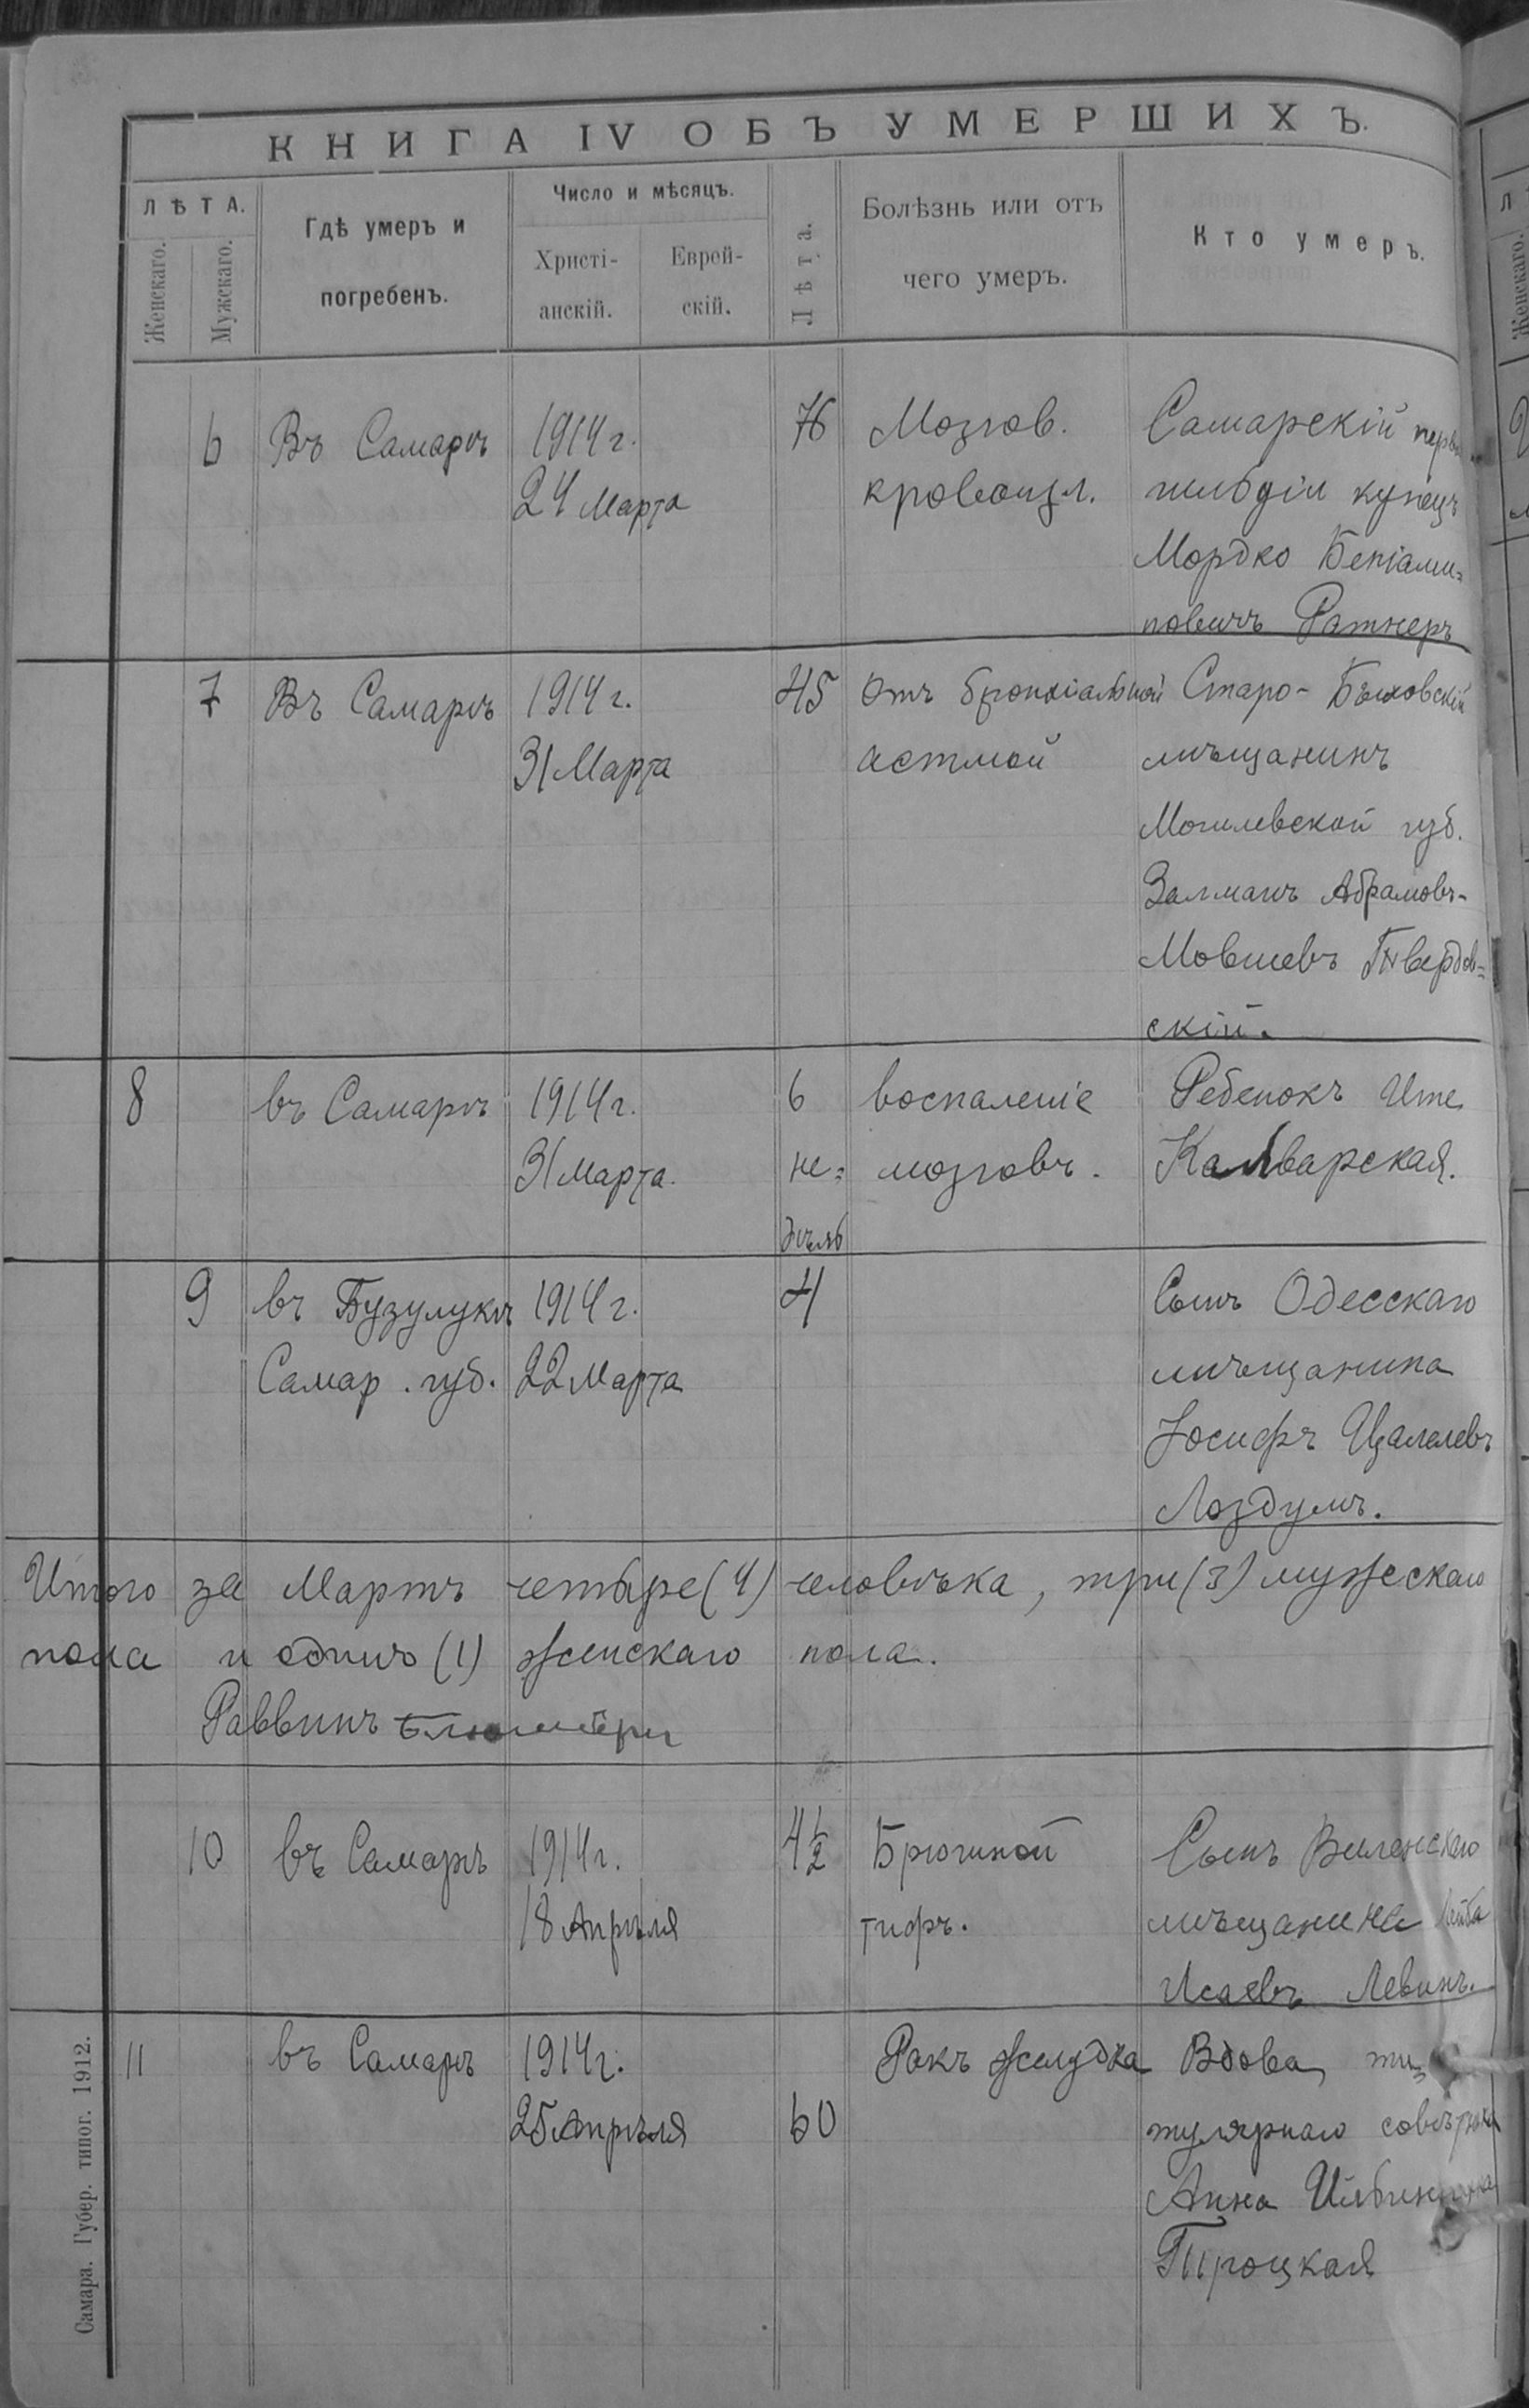 КНИГА IV ОБЪ УМЕРШИХЪ.
ЛѢТА.
Женскаго.
Мужскаго.
Гдѣ умеръ и
погребенъ.
Число и мѣсяцъ.
Христі-
анскій.
Еврей-
скій.
Лѣта.
Болѣзнь или отъ
чего умеръ.
Кто умеръ.
6 Въ Самарѣ 1914 г. 76 Мозгов. Самарскій
24 Марта кровоизл. гильдіи купецъ
Мордко Беніами=
новичъ Ратнеръ
7 Въ Самарѣ 1914 г. 45 Отъ бронхіальной Старо-Быховскій
31 Марта астмой мѣщанинъ
Могилевской губ.
Залманъ Абрамовъ-
Мовшевъ Твердов=
скій.
8 въ Самарѣ 1914 г. 6 воспаленіе Ребенокъ Ите
31 Марта. не= мозговъ. Калварская.
дѣль
9 въ Бузулукѣ 1914 г. 4 Сынъ Одесскаго
Самар. губ. 22 Марта мѣщанина
Іосифъ Цалелевъ
Лоздумъ.
Итого за Мартъ четыре (4) человѣка, три (3) мужескаго
пола и одинъ (1) женскаго пола.
Раввинъ
10 въ Самарѣ 1914 г. 4 1/2 Брюшной Сынъ Виленскаго
18 Апрѣля тифъ. мѣщанина Лейба
Исаевъ Левинъ.
11 въ Самарѣ 1914 г. Ракъ желудка Вдова ти=
25 Апрѣля 60 тулярнаго совѣтника
Анна
Троцкая
Самара. Губер. типог. 1912.